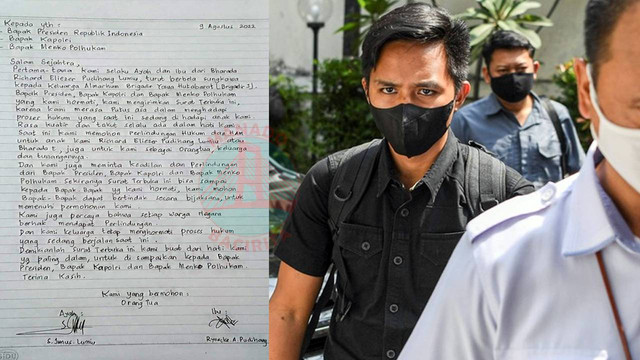 Kepada yth :
9 Agustus 2022
Bapak Presiden Republik Indonesia
Bapak Kapolri
Bapak Menko Polhukam
Salam Sejahtra,
Pertama-tama kami selaku Ayah dan Ibu dari Bharada
Richard Eliezer Pudihang Lumiu, turut berbela sungkawa
kepada keluarga Almarhum Brigadir Yosua Hutabarat [Brigadir J].
Bapak Presiden, Bapak Kapolri dan Bapak Menko Polhukam
yang kami hormati, kami mengirimkan surat Terbuka ini,
karena kami merasa Putus asa dalam menghadapi
proser hukum yang saat ini sedang di hadapi anak kami
Rasa kuatir dan takut selalu ada dalam hati kami
Saat ini kami memohon Perlindungan Hukum dan
untuk anak kami Richard Eliezer Pudihang Lumiu atau
Bharada E, juga untuk kami sebagai Orangtua, keluarga
dan tunangannya.
Dan kami juga meminta keadilan dan Perlindungan
dari Bapak Presiden, Bapak Kapolri dan Bapak Menko
Polhukam sekiranya surat Terbuka ini bisa sampai
kepada Bapak Bapak yg kami hormati, kami mohon
Bapak - Bapak dapat bertindak secara bijaksana, untuk
memenuhi permohonan kami.
Kami juga percaya bahwa setiap warga negara
berhak mendapat Perlindungan.
Dan kami keluarga tetap menghormati proses hukum
yang sedang berjalan saat ini.
Demikianlah surat Terbuka ini kami buat dari hati kami
yg paling dalam, untuk di sampaikan kepada Bapak
Presiden, Bapak Kapolri dan Bapak Menko Polhukam
Terima Kasih.
Kami yang bermohon :
Orang Tua
Ayah Ibu
S. Junus Lumiu Rynecke. A. Pudihang